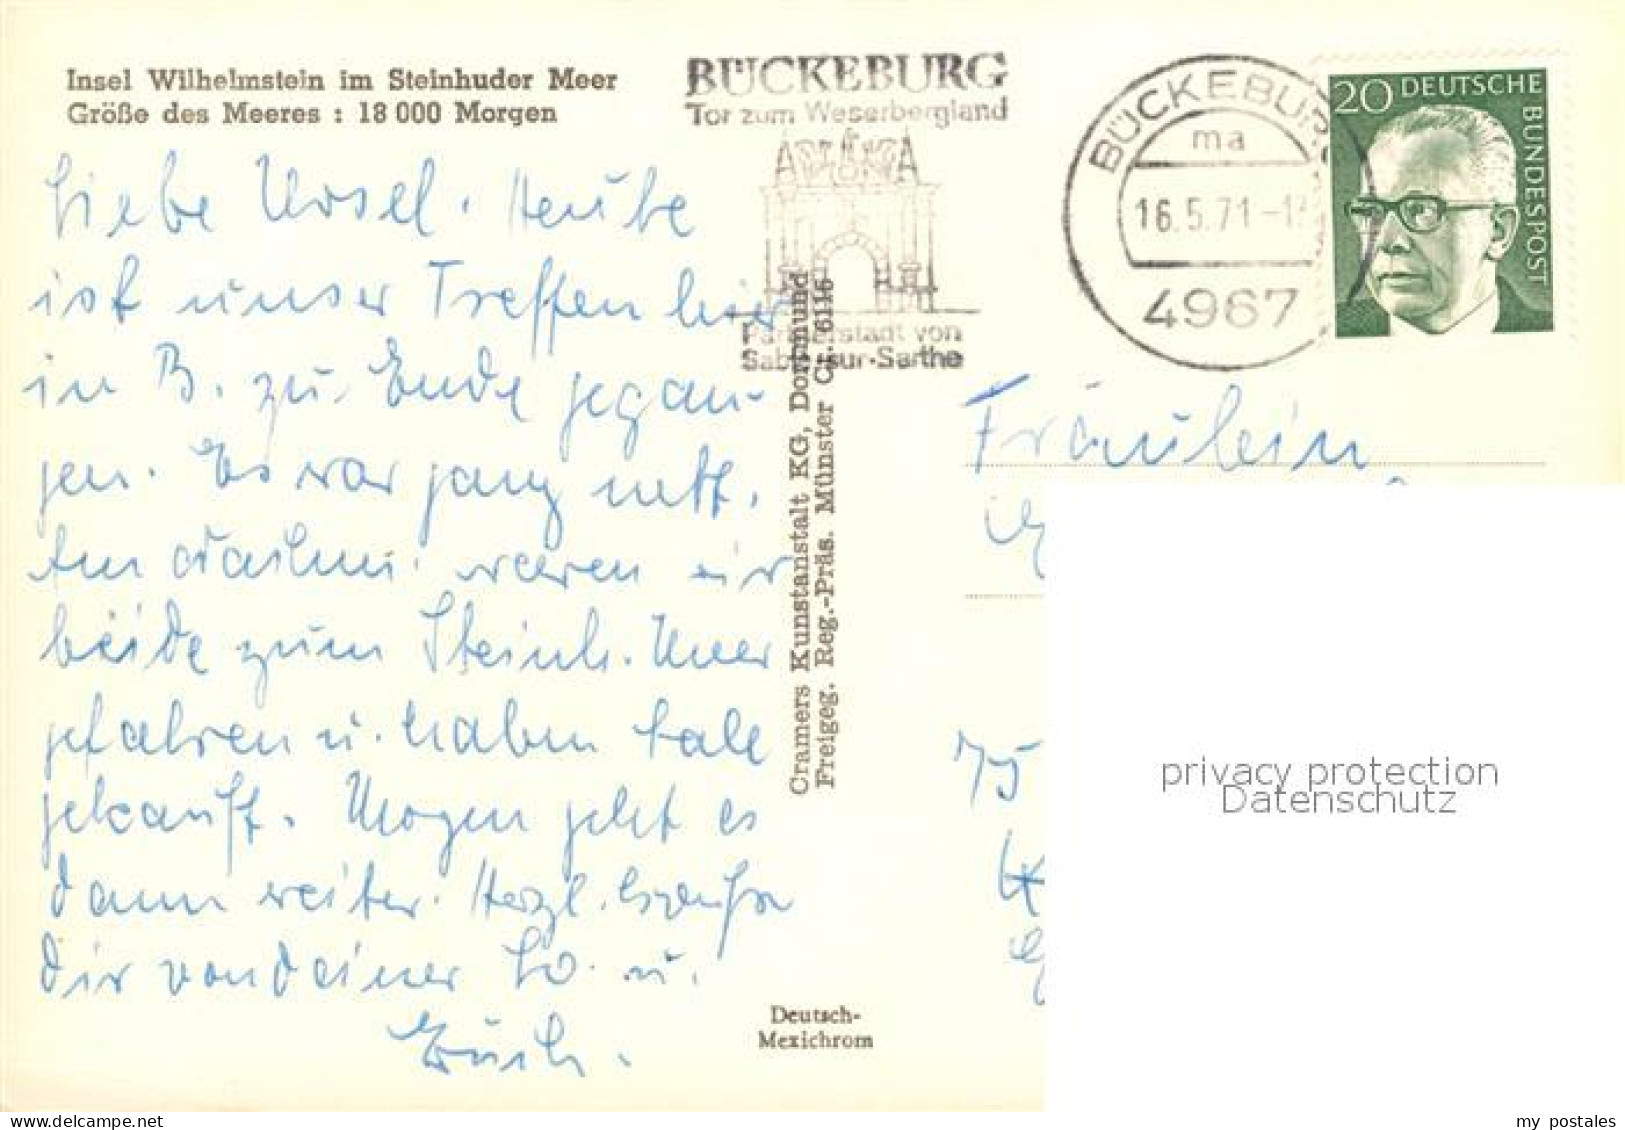 Insel Wilhelmstein im Steinhuder Meer
Größe des Meeres : 18 000 Morgen
BÜCKEBURG
Tor zum Weserbergland
Partnerstadt von
Sablé-sur-Sarthe
BÜCKEBURG
ma
16.5.71
4967
20 DEUTSCHE
BUNDESPOST
Liebe Ursel. Heute
ist unser Treffen hier
in B. zu Ende gegan-
gen. Es war ganz nett.
Am waren wir
beide zum Steinh. Meer
gefahren u. haben Aale
gekauft. Morgen geht es
dann weiter. Herzl. Grüße
dir von deiner u.
Cramers Kunstanstalt KG, Dortmund
Freigeg. Reg.-Präs. Münster 6116
Deutsch-
Mexichrom
Fräulein
75
privacy protection
Datenschutz
delcampe.net
my_postales